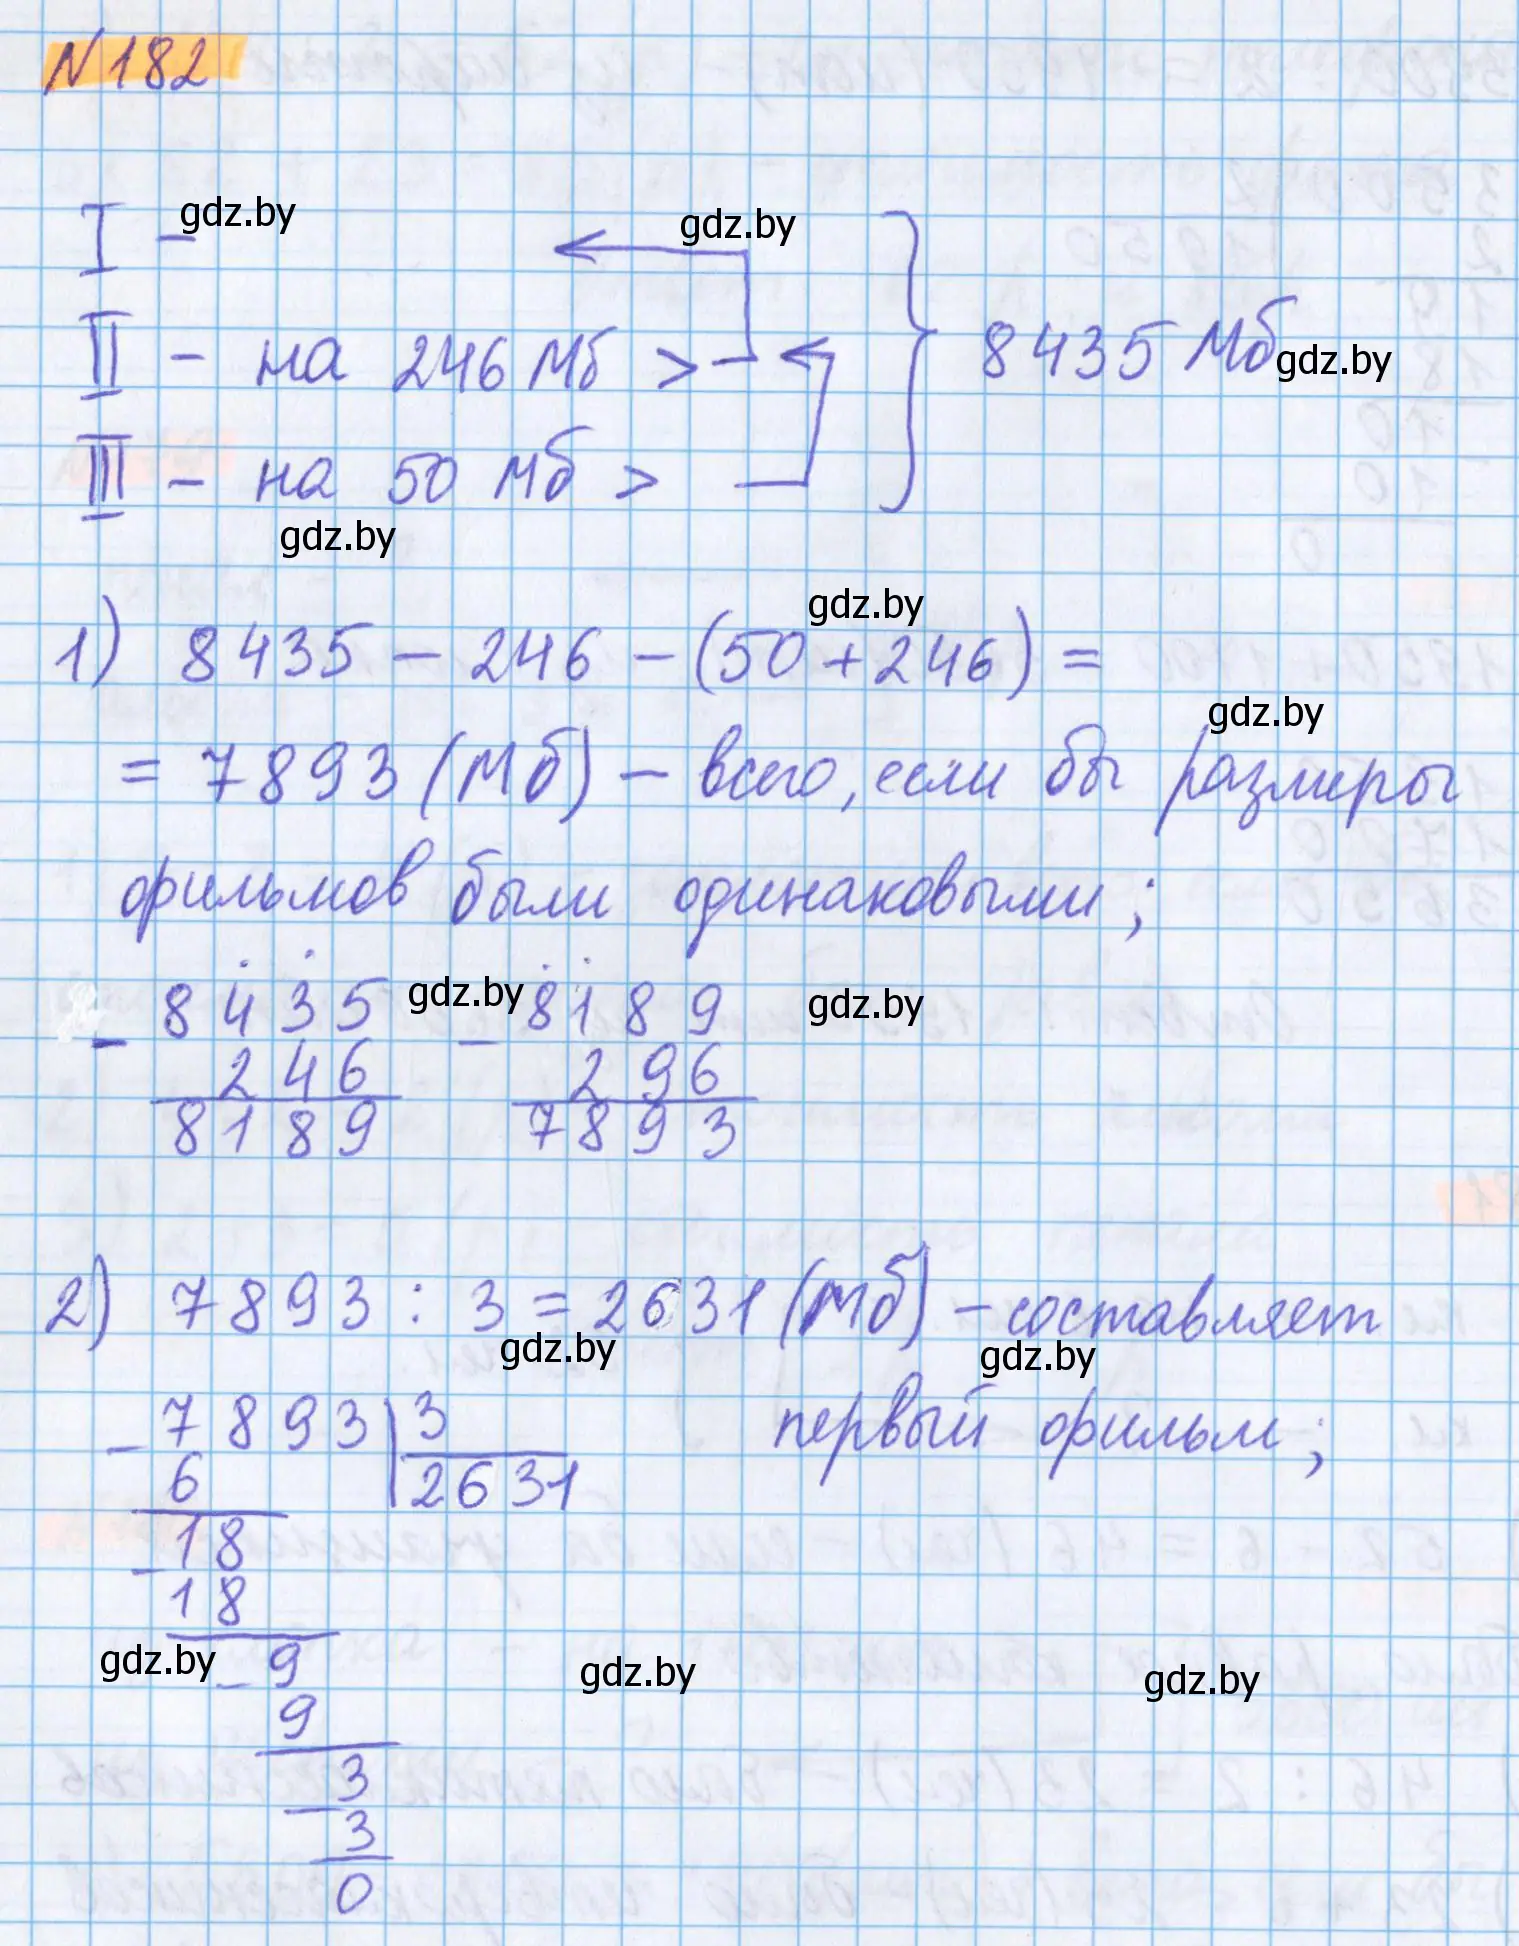 N 182
gdz.by
gdz.by
I –
II – на 246 Мб > 8435 Мб gdz.by
III – на 50 Мб >
gdz.by
gdz.by
1) 8435 – 246 – (50 + 246) =
gdz.by
= 7893 (Мб) – всего, если бы размеры
фильмов были одинаковыми;
– 8435 gdz.by – 8189 gdz.by
246 296
8189 7893
2) 7893 : 3 = 2631 (Мб) – составляет
gdz.by gdz.by
первый фильм;
– 7893 | 3
6 2631
– 18
18
gdz.by – 9 gdz.by gdz.by
9
– 3
3
0